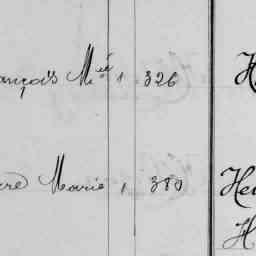 ançois M.el 1 326 H
re Marie 1 380 He
H